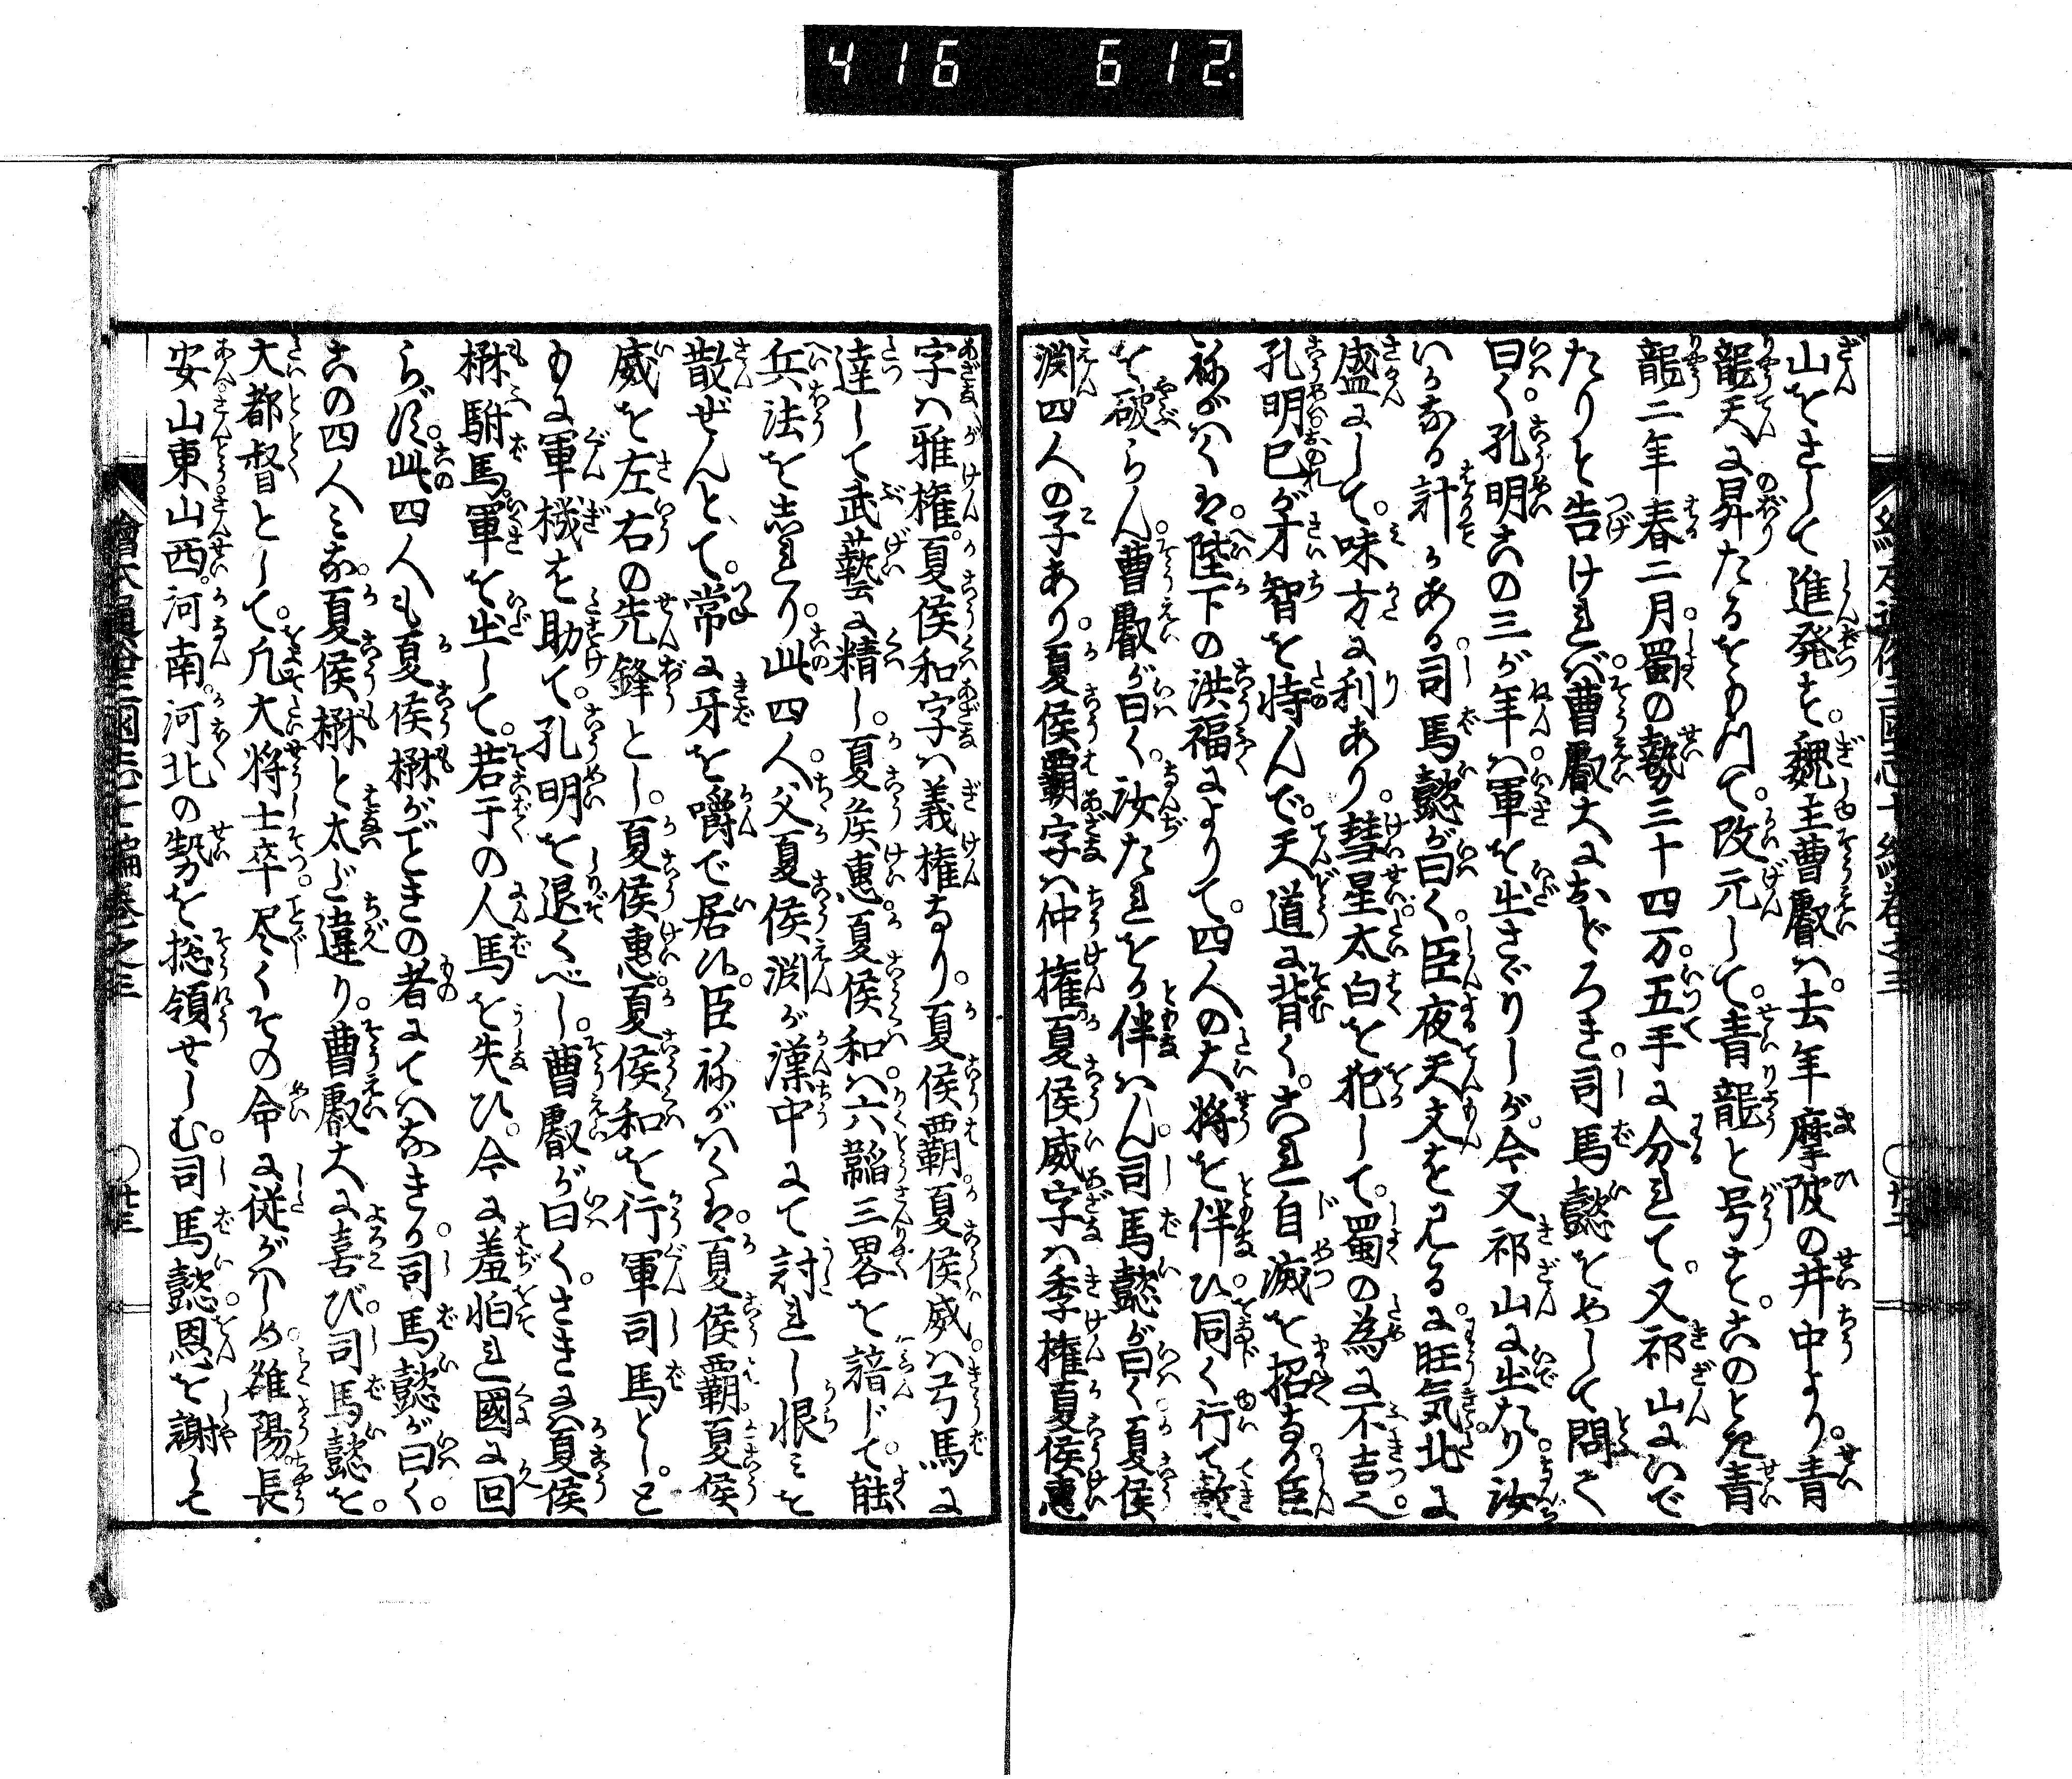 416 612
山をさして進発す。魏主曹叡ハ。去年摩陂の井中より。青
龍天に昇たるをもつて。改元して。青龍と号す。このとき青
龍二年春二月。蜀の勢三十四万。五手に分れて。又祁山にいで
たりと告けれバ。曹叡大におどろき。司馬懿をめして問て
曰く。孔明この三が年ハ軍を出さゞりしが。今又祁山に出たり。汝
いかなる計かある。司馬懿が曰く。臣夜天文を見るに。旺気北に
盛にして。味方に利あり。彗星太白を犯して。蜀の為に不吉也。
孔明己が才智を恃んで。天道に背く。これ自滅を招なり。臣
ねがハくハ。陛下の洪福によりて。四人の大将を伴ひ。同く行て敵
を破らん。曹叡が曰く。汝たれをか伴ハん。司馬懿が曰く。夏侯
淵四人の子あり。夏侯覇字ハ仲権。夏侯威字ハ季権。夏侯惠
字ハ雅権。夏侯和字ハ義権なり。夏侯覇。夏侯威ハ。弓馬に
達して武藝に精し。夏侯惠。夏侯和ハ。六韜三畧を諳じて。能
兵法を志れり。此四人。父夏侯淵が漢中にて討れし恨ミを
散ぜんとて。常に牙を嚼で居れ。臣ねがハくハ。夏侯覇。夏侯
威を左右の先鋒とし。夏侯惠。夏侯和を行軍司馬とし。と
もに軍機を助て。孔明を退くべし。曹叡が曰く。さきに夏侯
楙駙馬。軍を出して。若干の人馬を失ひ。今に羞怕れ國に回
らず。此四人も夏侯楙がごときの者にてハなきか。司馬懿が曰く。
この四人ミな。夏侯楙と太ど違り。曹叡大に喜び。司馬懿を。
大都督として。凡大将士卒。尽くその命に従がハしめ。雒陽。長
安。山東。山西。河南。河北の勢を総領せしむ。司馬懿恩を謝して
繪本通俗三國志七編巻之三
廿三